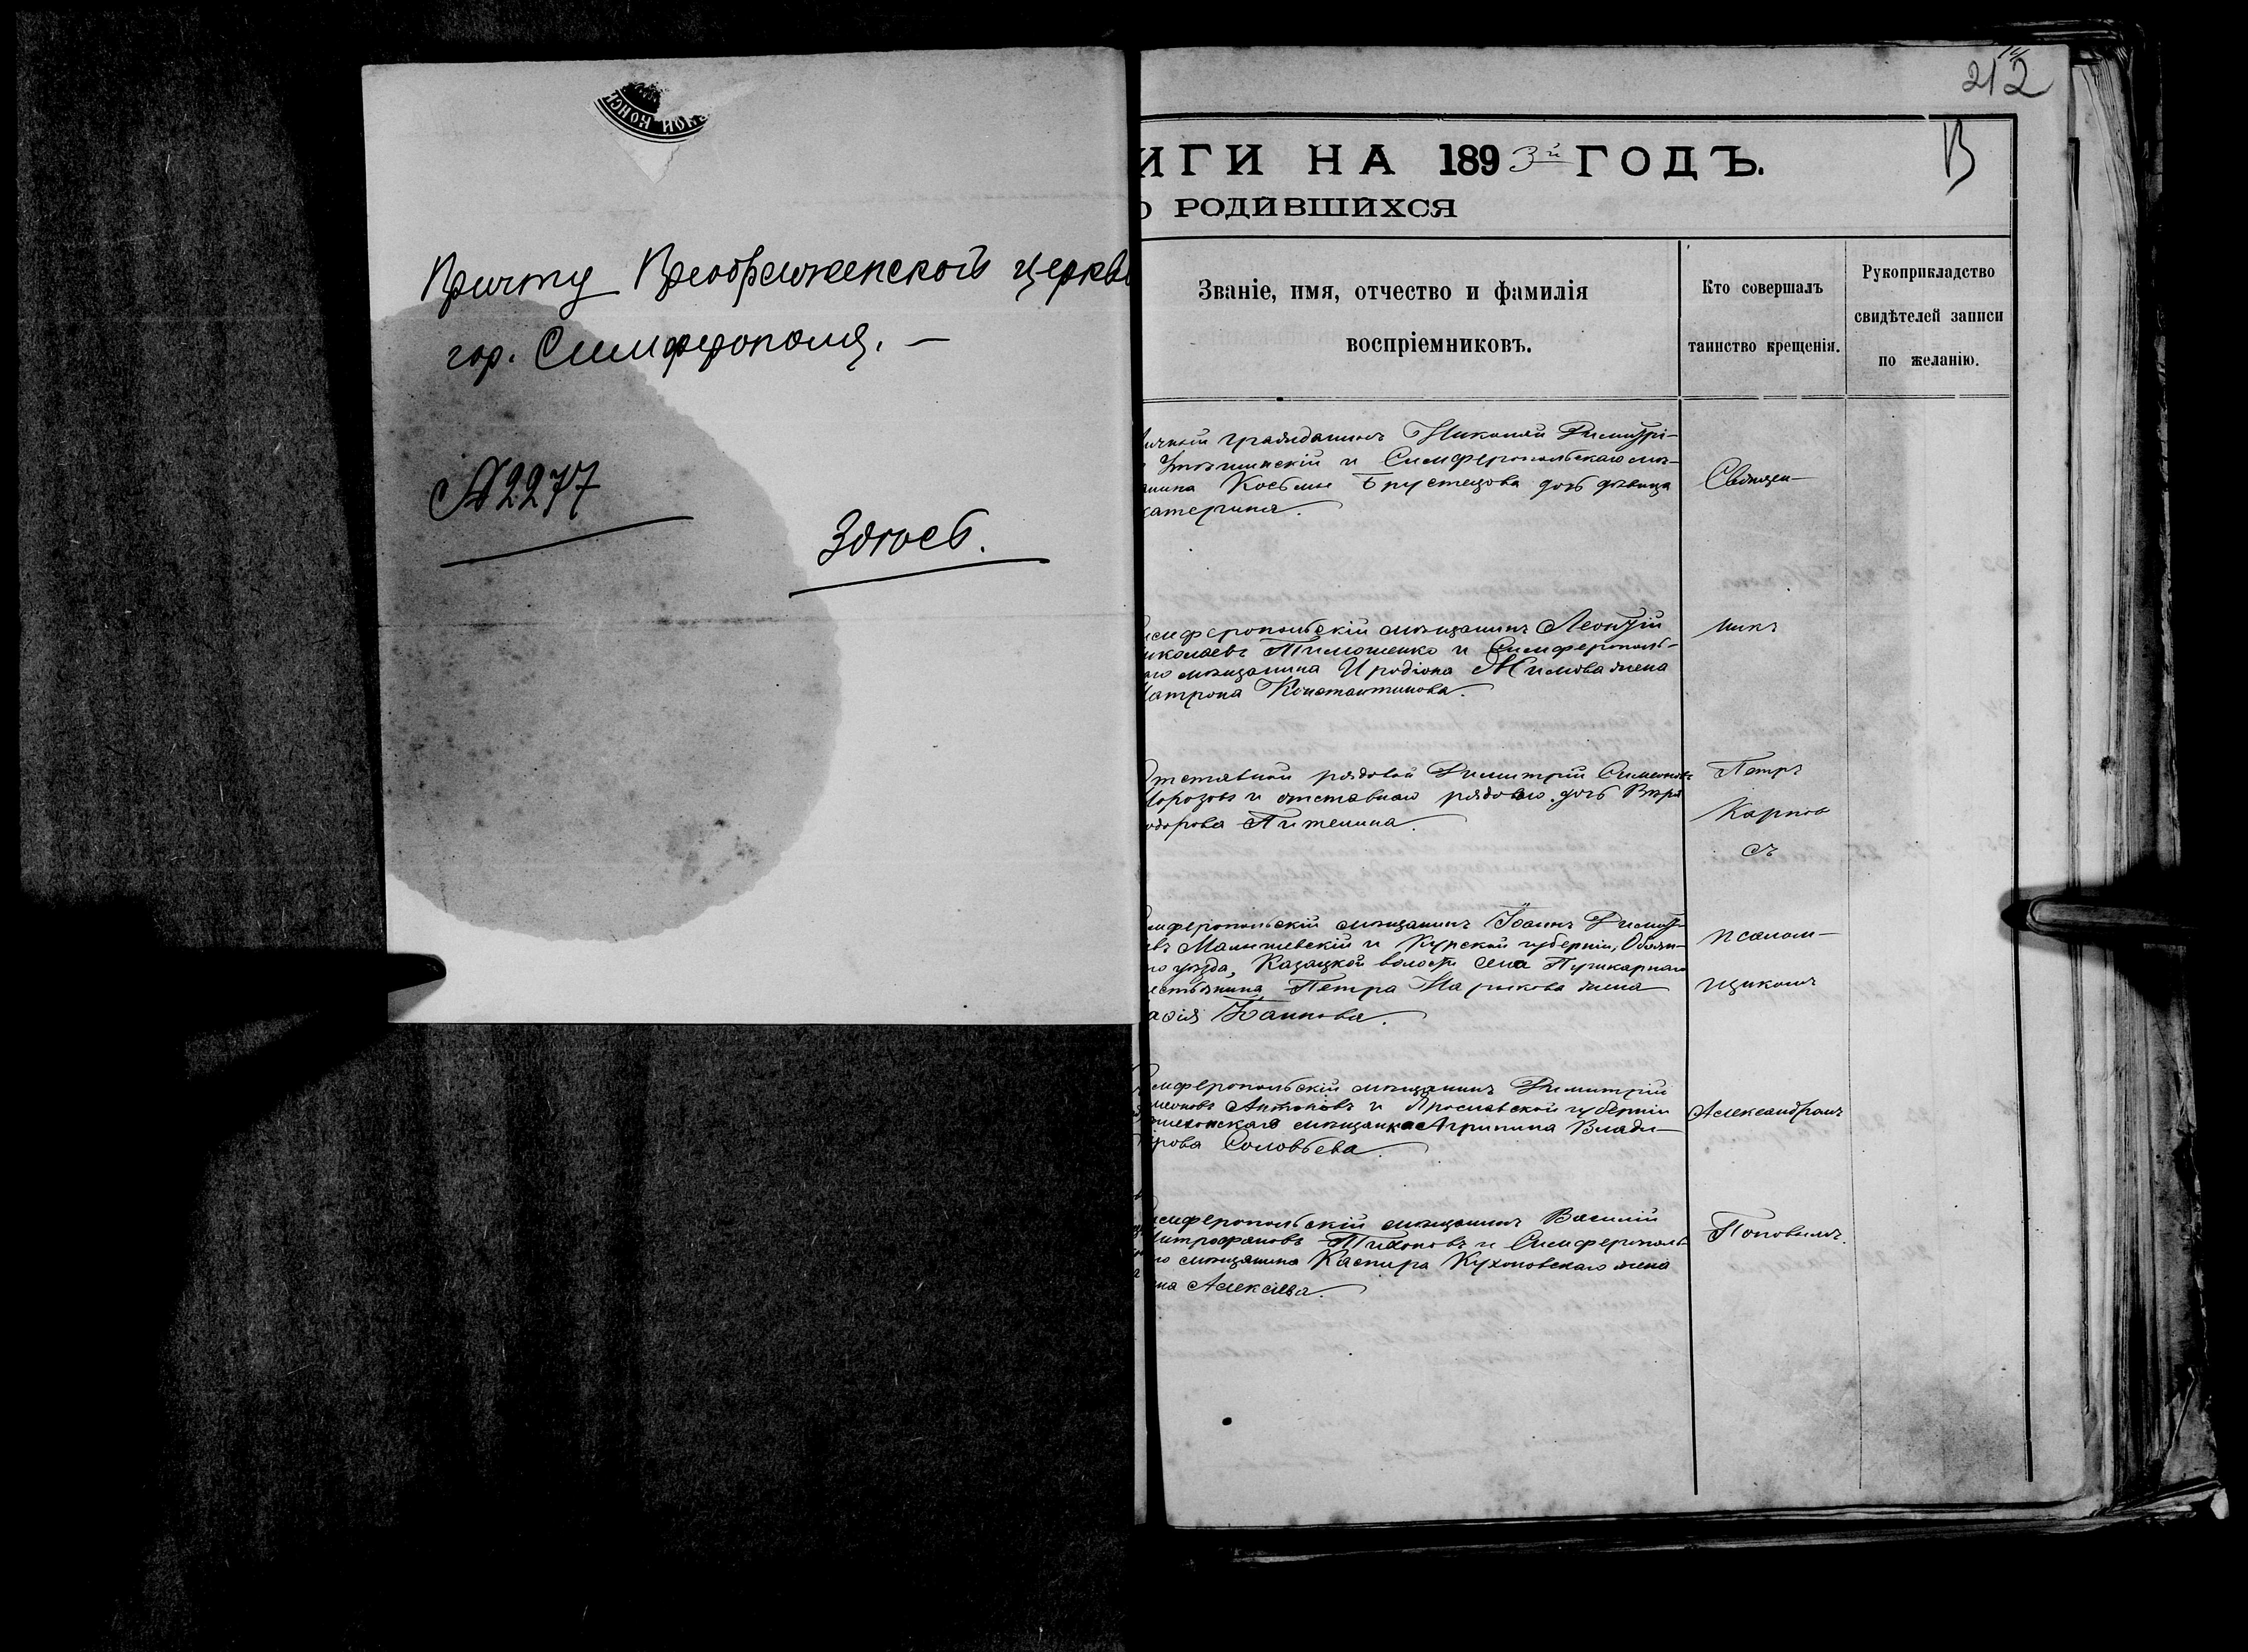 Причту Преображенской церкви
гор. Симферополя. —
№ 2277
Здѣсь.
212
ИГИ НА 1893й ГОДЪ.
О РОДИВШИХСЯ
Званіе, имя, отчество и фамилія
воспріемниковъ.
Кто совершалъ
таинство крещенія.
Рукоприкладство
свидѣтелей записи
по желанію.
ичный гражданинъ Николай Димитрі-
и Симферопольскаго мѣ-
анина Косьмы дочь дѣвица
катерина.
Священ-
имферопольскій мѣщанинъ Леонтій
иколаевъ Тимошенко и Симферополь-
аго мѣщанина Иродіона жена
атрона Константинова.
никъ
тставной рядовой Димитрій Симеоновъ
орозовъ и отставнаго рядоваго дочь Вѣра
одорова
Петръ
Карпов
съ
имферопольскій мѣщанинъ Іоаннъ Димитрі-
евъ Малышевскій и Курской губерніи, Обоян-
го уѣзда, Казацкой волости села Пушкарнаго
естьянина Петра Маркова жена
афія
псалом-
щикомъ
имферопольскій мѣщанинъ Димитрій
имеоновъ Антоновъ и Ярославской губерніи
мѣщанка Агрипина Влади-
рова Соловьева.
Александромъ
имферопольскій мѣщанинъ Василій
итрофановъ Тихоновъ и Симферополь-
го мѣщанина Каспира Кухоновскаго жена
на Алексѣева.
Поповымъ.